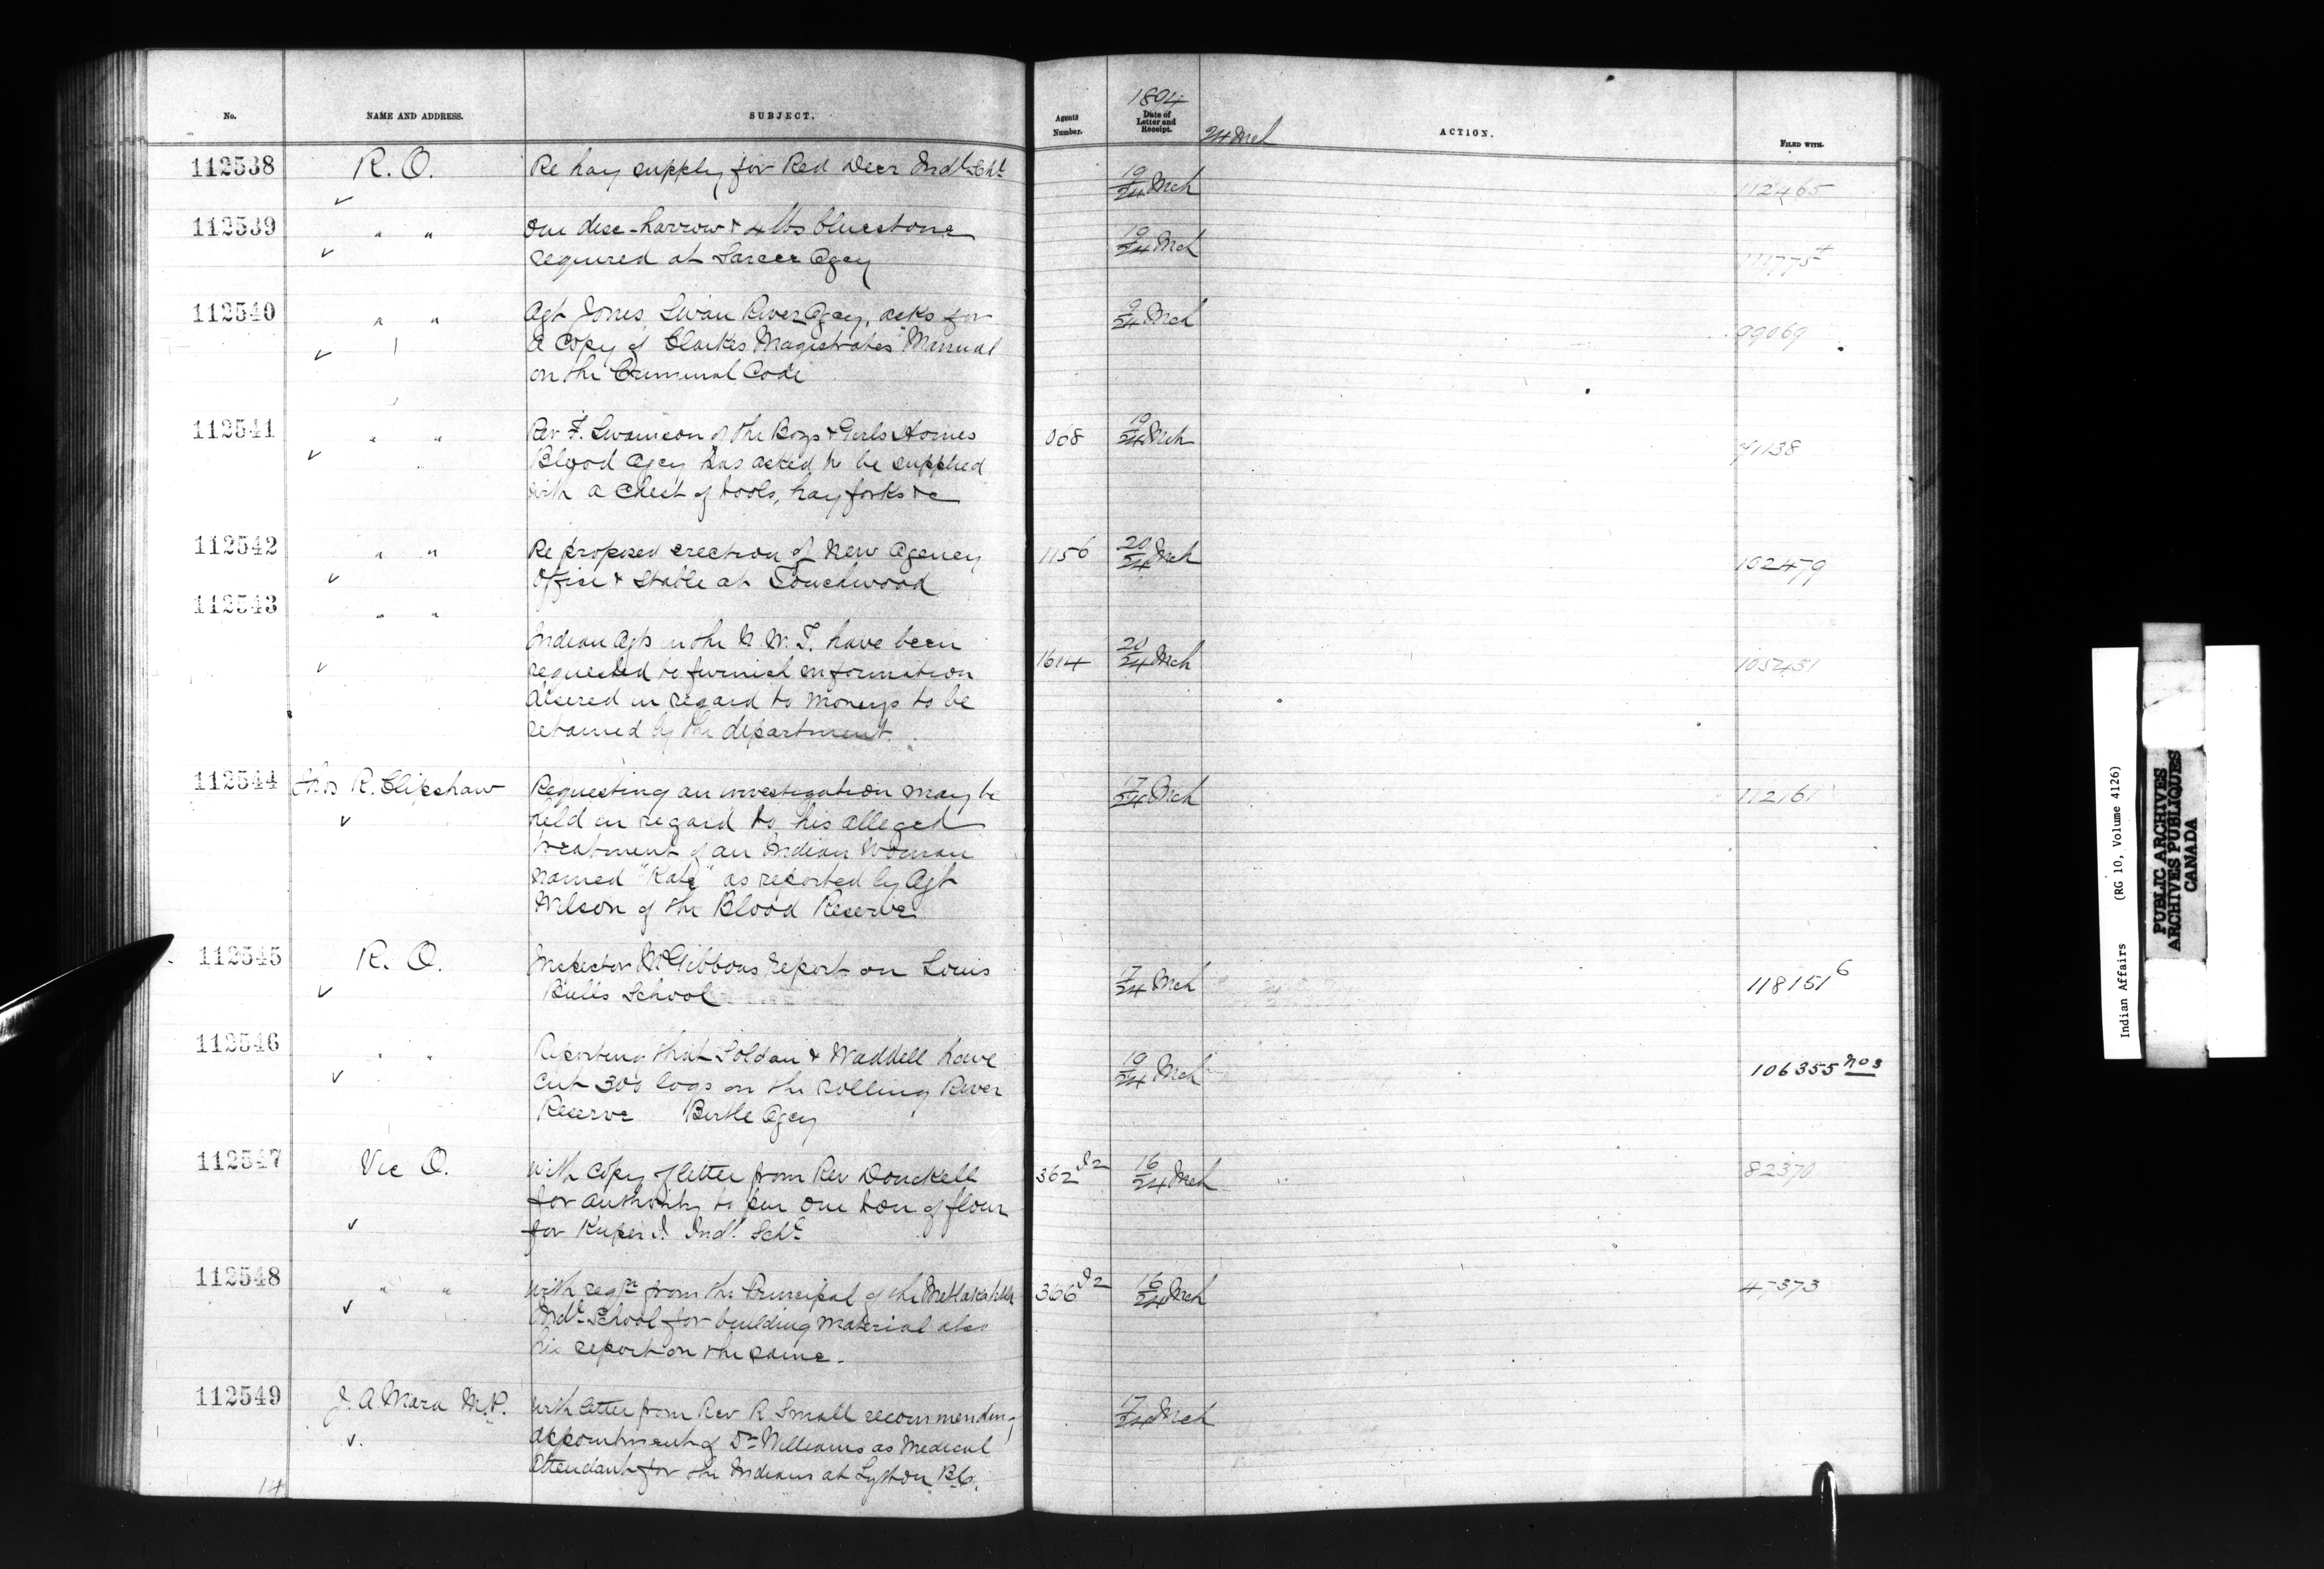 No. NAME AND ADDRESS. SUBJECT. Agents Number. 1894 Date of Letter and Receipt. 24 Mch ACTION. FILED WITH.
112538 R. O. Re hay supply for Red Deer Indl Schl 19/24 Mch 112465
112539 " " One disc-harrow & 4 lbs bluestone 19/24 Mch
required at Sarcee Agcy 111775
112540 " " Agt Jones Swan River Agcy, asks for 9/24 Mch 99069
a copy of Clarkes Magistrates Manual
on the Criminal Code
112541 " " Rev F. Swainson of the Boys & Girls Homes 068 19/24 Mch 71138
Blood Agcy has asked to be supplied
with a chest of tools, hay forks &c
112542 " " Re proposed erection of New Agency 1156 20/24 Mch 102479
Office & Stable at Touchwood
112543 " "
Indian Agts in the N. W. T. have been 1614 20/24 Mch 105451
requested to furnish information
desired in regard to moneys to be
retained by the department.
112544 Thos R. Clipshaw Requesting an investigation may be 17/24 Mch 112161
held in regard to his alleged
treatment of an Indian Woman
named "Kate" as reported by Agt
Wilson of the Blood Reserve
112545 R. O. Inspector McGibbons report on Louis 17/24 Mch 118151 6
Bulls School
112546 " " Reporting that Soldan & Waddell have 19/24 Mch 106355 nos
cut 300 logs on the rolling River
Reserve Birtle Agcy
112547 Vic O. With copy of letter from Rev Donckell 362 I2 16/24 Mch 82370
for authority to pur one ton of flour
for Kuper I. Indl. Schl
112548 " " With reqn from the Principal of the Metlakahtla 366 I2 16/24 Mch 47373
Indl School for building material also
his report on the same.
112549 J. A. Mara M.P. With letter from Rev R. Small recommending 17/24 Mch
appointment of Dr Williams as Medical
Attendant for the Indians at Lytton B.C.
14
Indian Affairs (RG 10, Volume 4126)
PUBLIC ARCHIVES
ARCHIVES PUBLIQUES
CANADA